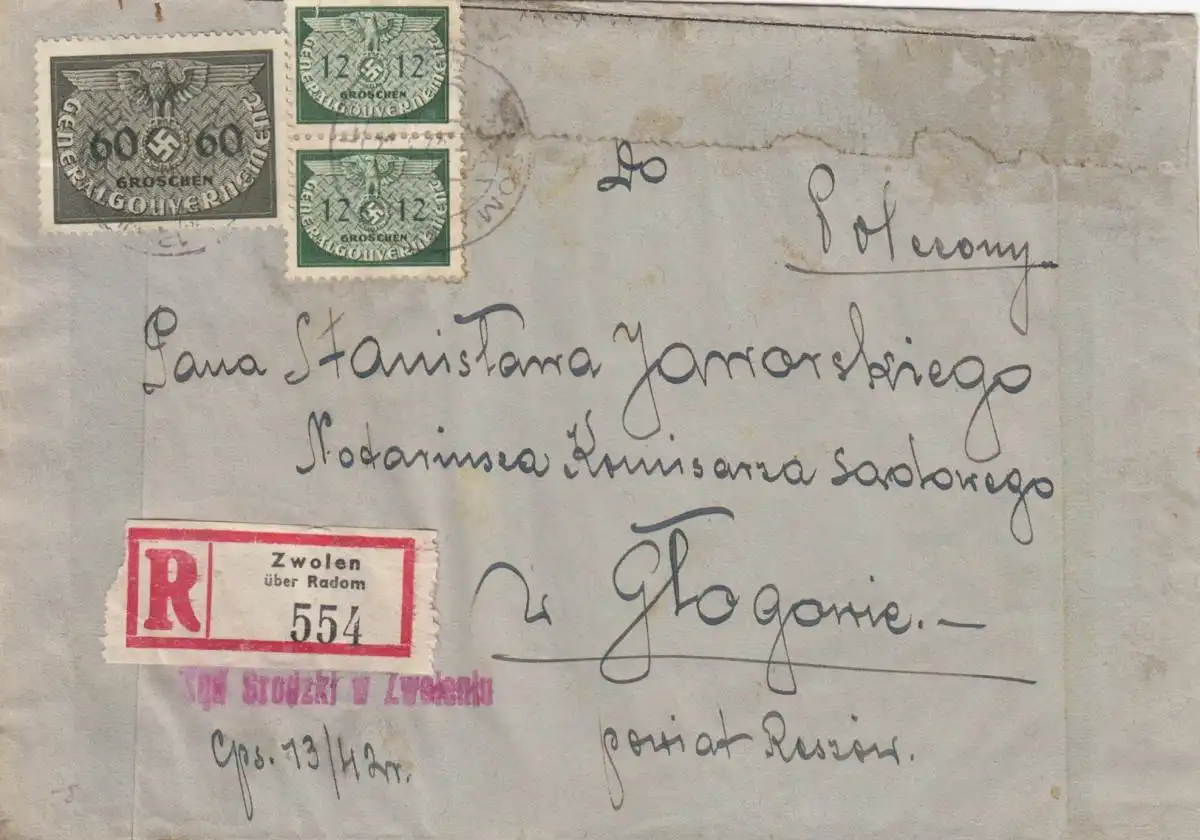 60 60
GROSCHEN
GENERALGOUVERNEMENT
12 12
GROSCHEN
GENERALGOUVERNEMENT
12 12
GROSCHEN
GENERALGOUVERNEMENT
OM
Do
Polecony
Pana Stanisława Jaworskiego
Notariusza Komisarza sądowego
w Głogowie.—
powiat Reszów.
R
Zwolen
über Radom
554
Sąd Grodzki w Zwoleniu
Cps. 13/42r.